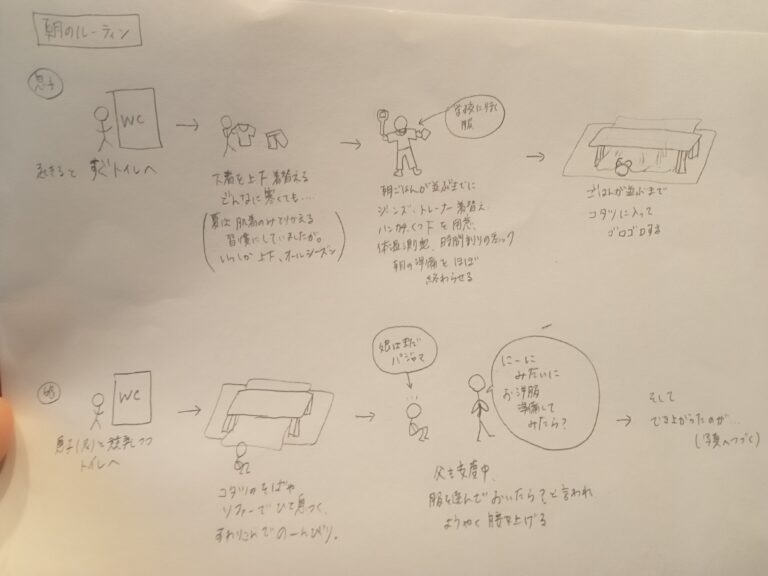 朝のルーティン
息子
WC
起きると すぐトイレへ
下着を上下着替える
どんなに寒くても…
(夏は 肌着のみでりかえる
習慣にしていましたが。
いつしか上下、オールシーズン)
学校に行く
服
朝ごはんが並ぶまでに
ジーンズ、トレーナー着替え、
ハンカチ、くつ下を用意、
体温測定、時間割りのチェック
朝の準備をほぼ
終わらせる
ごはんが並ぶまで
コタツに入って
ゴロゴロする
娘
WC
息子(兄)と競争しつつ
トイレへ
コタツのそばや
ソファーでひと息つく、
すわりこんでのーんびり。
娘はまだ
パジャマ
にーに
みたいに
お洋服
準備して
みたら?
父も支度中、
服を選んでおいたら?と言われ
ようやく腰を上げる
そして
でき上がったのが…
(写真へつづく)